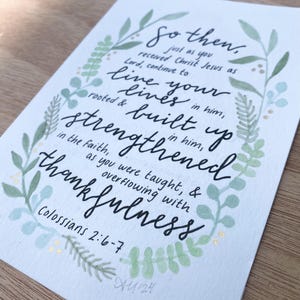 So then,
just as you
received Christ Jesus as
Lord, continue to
live your
lives in him,
rooted & built up
in him,
strengthened
in the faith,
as you were taught, &
overflowing with
thankfulness
Colossians 2:6-7